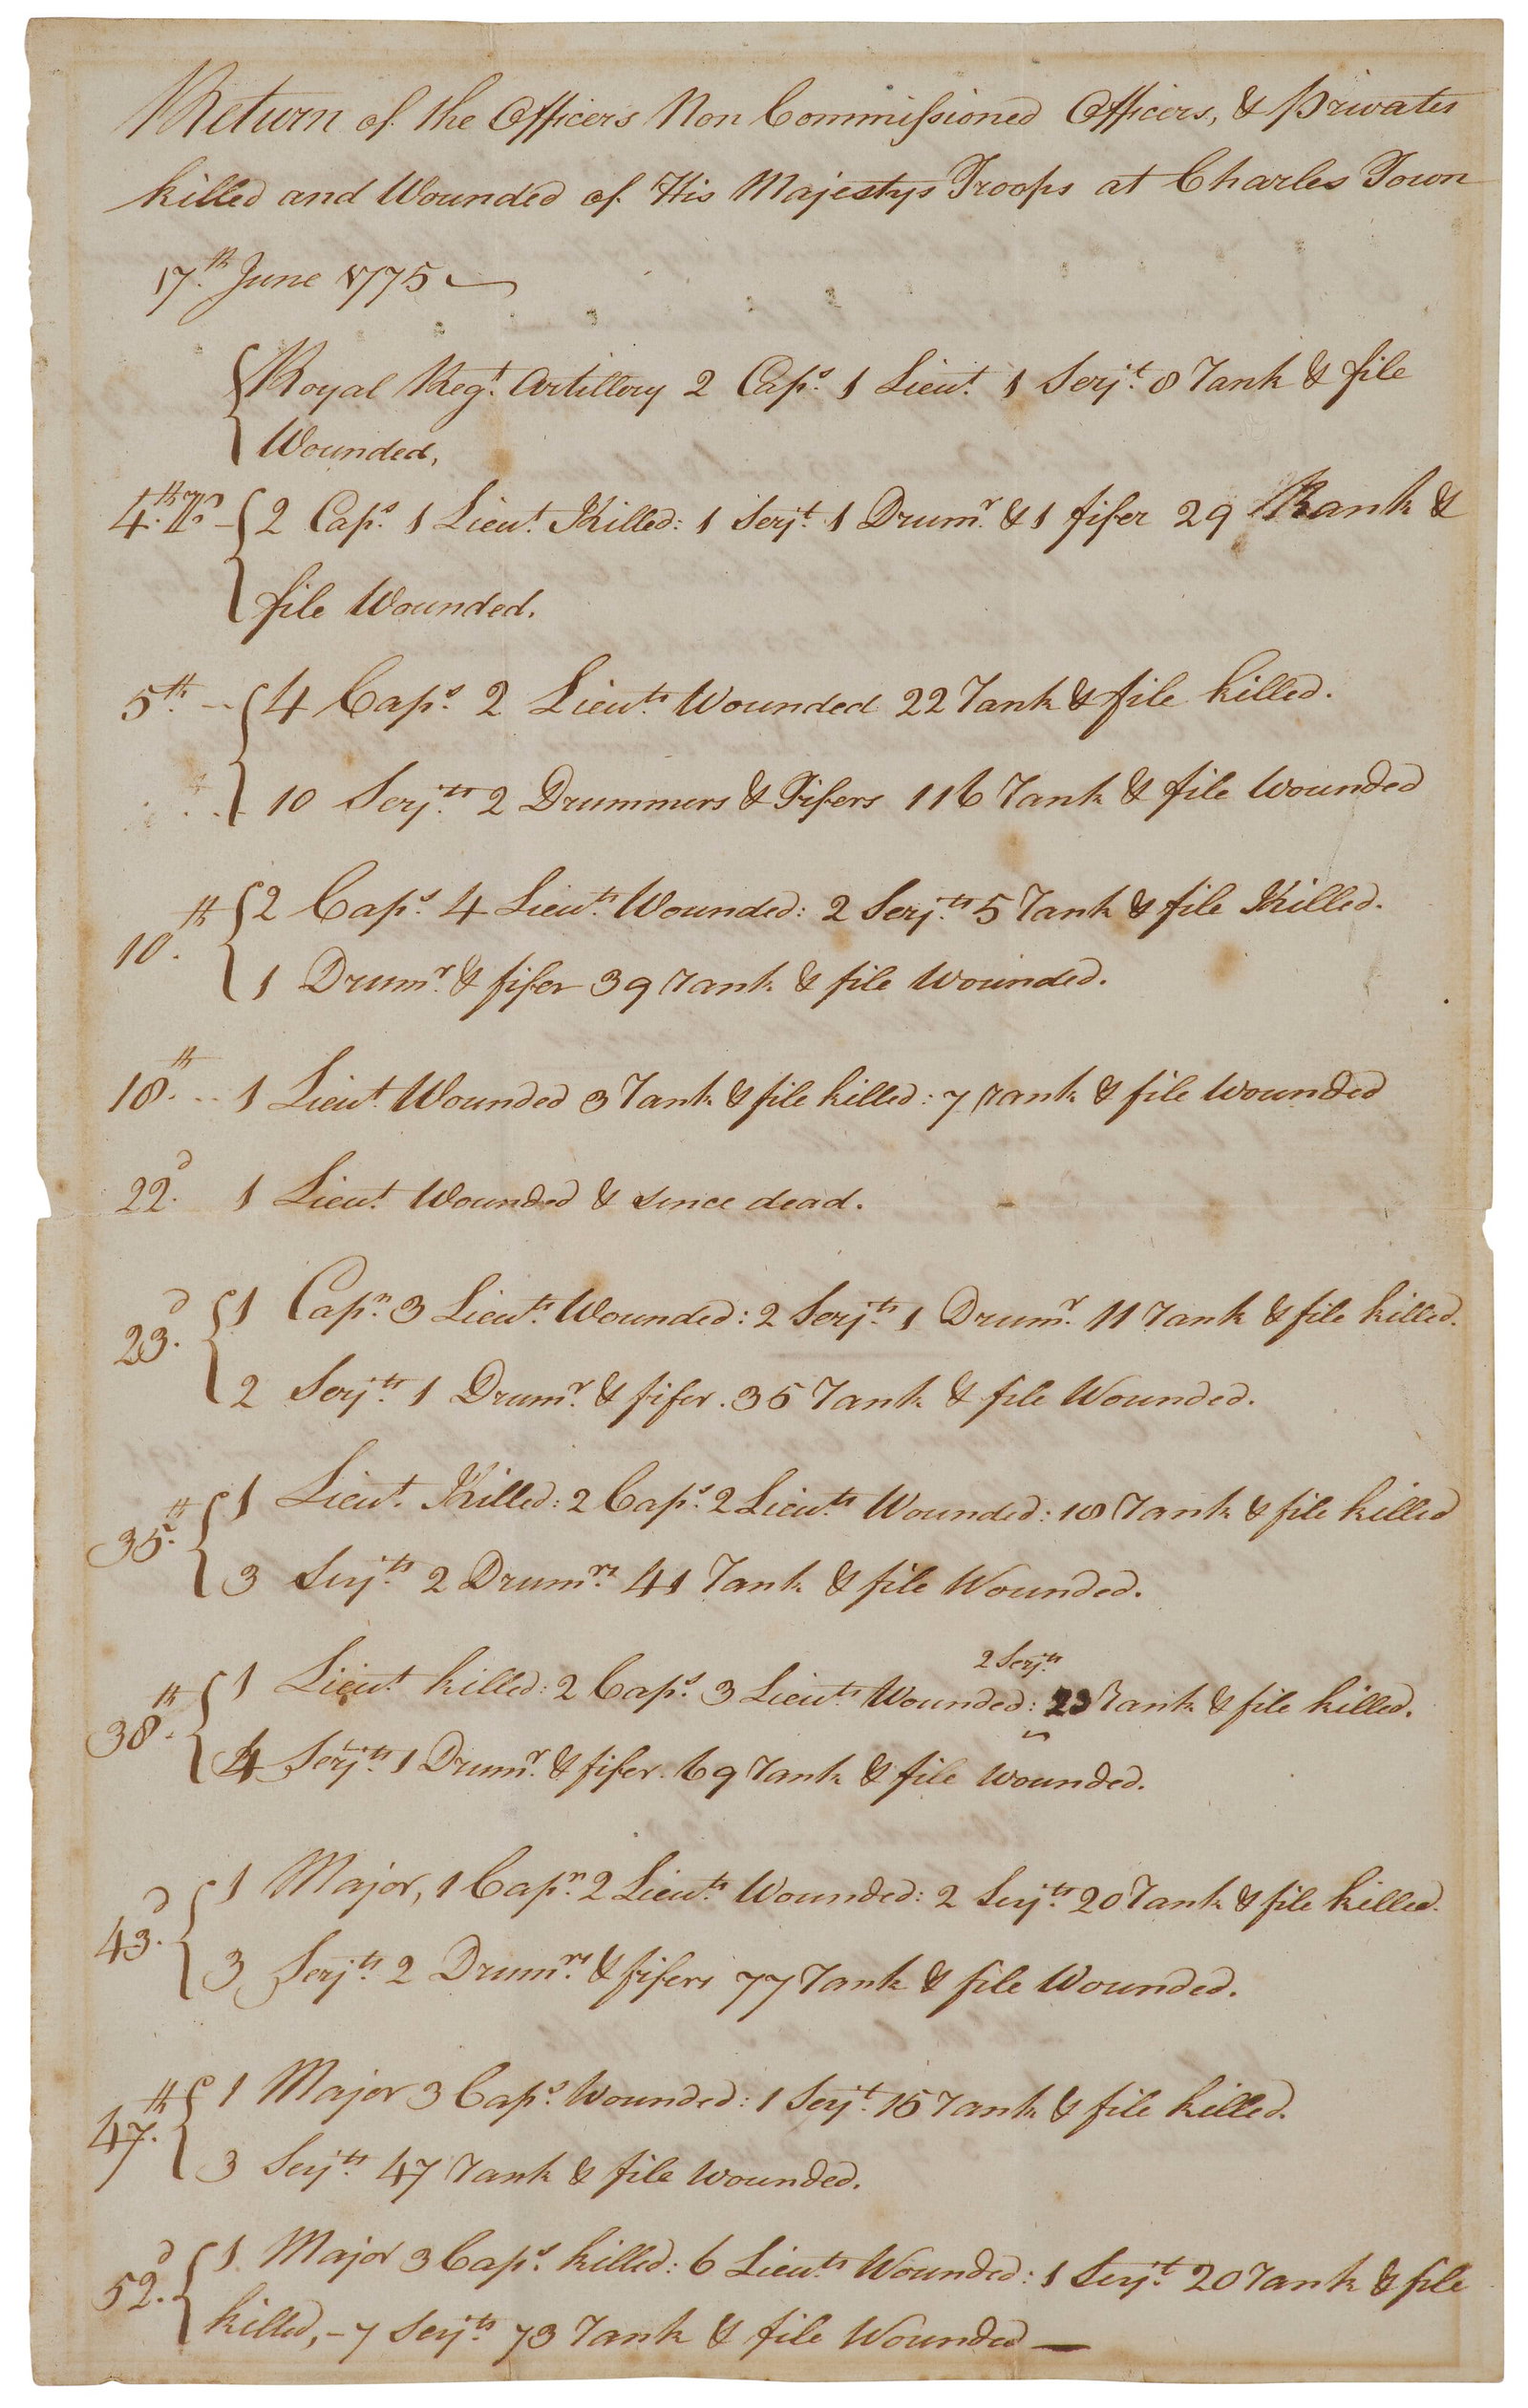 Return of the Officers Non Commissioned Officers, & privates
killed and Wounded of His Majestys Troops at Charles Town
17.th June 1775
Royal Regt. Artillery 2 Caps. 1 Lieut. 1 Serjt. 8 rank & file
Wounded,
4.th 2 Caps. 1 Lieut. Killed: 1 Serjt. 1 Drumr. & 1 fifer 29 Rank &
file Wounded.
5th. -- 4 Caps. 2 Lieuts. Wounded 22 rank & file killed.
10 Serjts. 2 Drummers & Fifers 116 rank & file Wounded
10.th 2 Caps. 4 Lieuts. Wounded: 2 Serjts. 5 rank & file Killed.
1 Drumr. & fifer 39 rank & file Wounded.
18.th -- 1 Lieut. Wounded 3 rank & file killed: 7 rank & file Wounded
22.d 1 Lieut. Wounded & since dead.
23.d 1 Capn. 3 Lieuts. Wounded: 2 Serjts. 1 Drumr. 11 rank & file killed.
2 Serjts. 1 Drumr. & fifer. 35 rank & file Wounded.
35.th 1 Lieut. Killed: 2 Caps. 2 Lieuts. Wounded: 18 rank & file killed
3 Serjts. 2 Drumrs. 41 rank & file Wounded.
2 Serjts.
38.th 1 Lieut. killed: 2 Caps. 3 Lieuts. Wounded: 23 rank & file killed.
4 Serjts. 1 Drumr. & fifer. 69 rank & file Wounded.
43.d 1 Major, 1 Capn. 2 Lieuts. Wounded: 2 Serjts. 20 rank & file killed.
3 Serjts. 2 Drumrs. & fifers 77 rank & file Wounded.
47.th 1 Major 3 Caps. Wounded: 1 Serjt. 15 rank & file killed.
3 Serjts. 47 rank & file Wounded.
52.d 1 Major 3 Caps. killed: 6 Lieuts. Wounded: 1 Serjt. 20 rank & file
killed, - 7 Serjts. 73 rank & file Wounded —